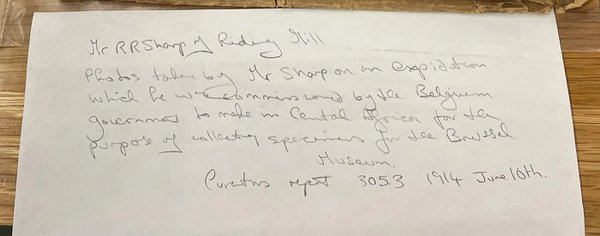 Mr R R Sharp of Riding Mill
Photos taken by Mr Sharp on an expidition
which he was commissioned by the Belgium
government to make in Central Africa for the
purpose of collecting specimens for the Brussel
Museum.
Curators report 305.3 1914 June 10th.